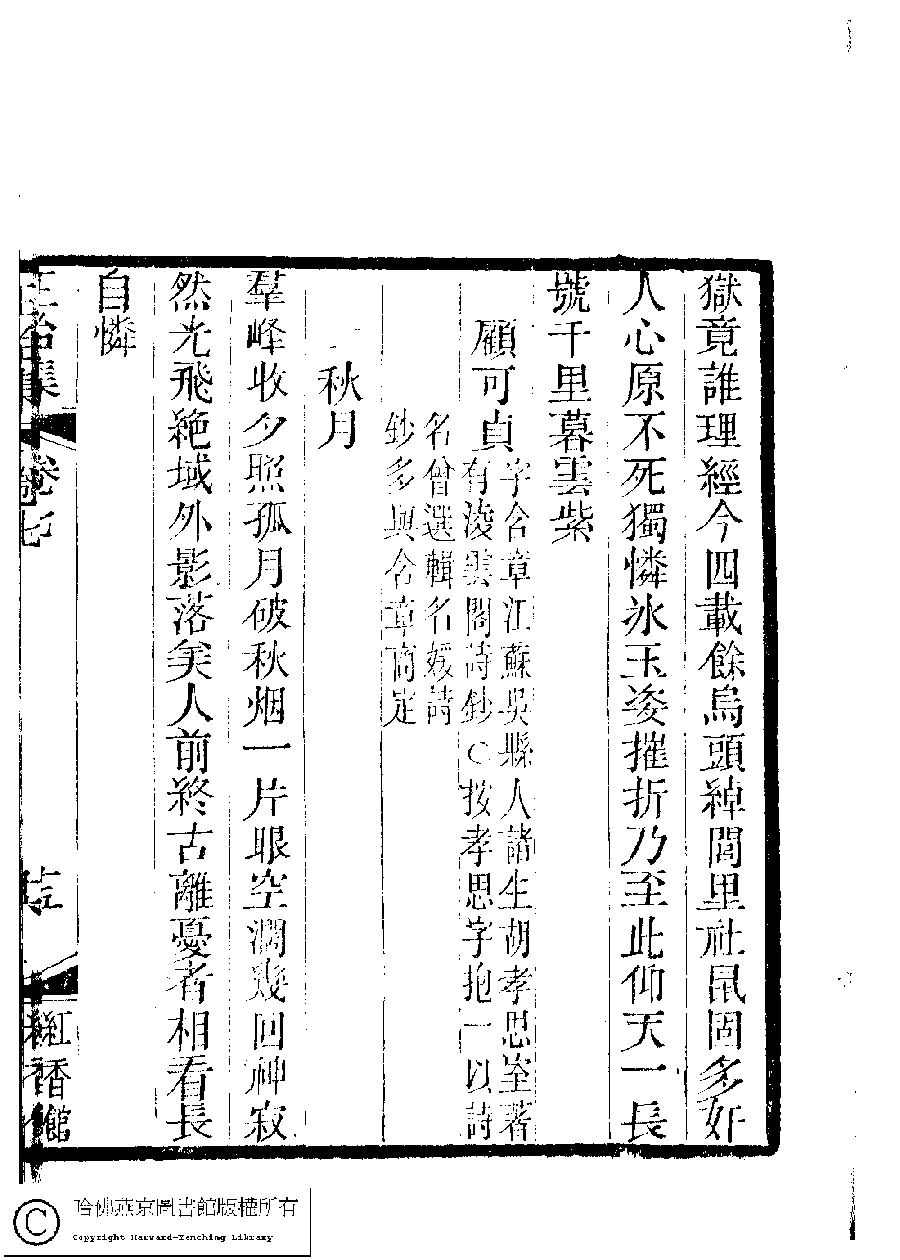 獄竟誰理經今四載餘烏頭綽閭里社鼠固多奸
人心原不死獨憐冰玉姿摧折乃至此仰天一長
號千里暮雲紫
顧可貞
字含章江蘇吳縣人諸生胡孝思室著
有浚雲閣詩鈔○按孝思字抱一以詩
名曾選輯名媛詩
鈔多與含章商定
秋月
羣峰收夕照孤月破秋烟一片眼空濶幾回神寂
然光飛絶域外影落美人前終古離憂者相看長
自憐
正始集
卷七
紅香館
哈佛燕京圖書館版權所有
Copyright Harvard-Yenching Library